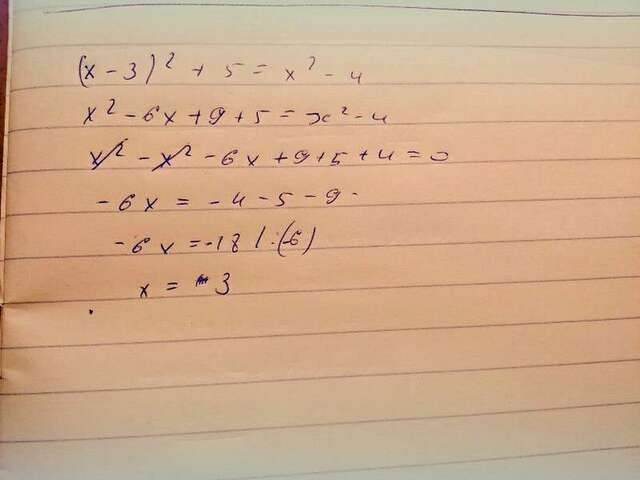 (x - 3)² + 5 = x² - 4
x² - 6x + 9 + 5 = x² - 4
x² - x² - 6x + 9 + 5 + 4 = 0
- 6x = - 4 - 5 - 9
- 6x = -18 / :(-6)
x = 3